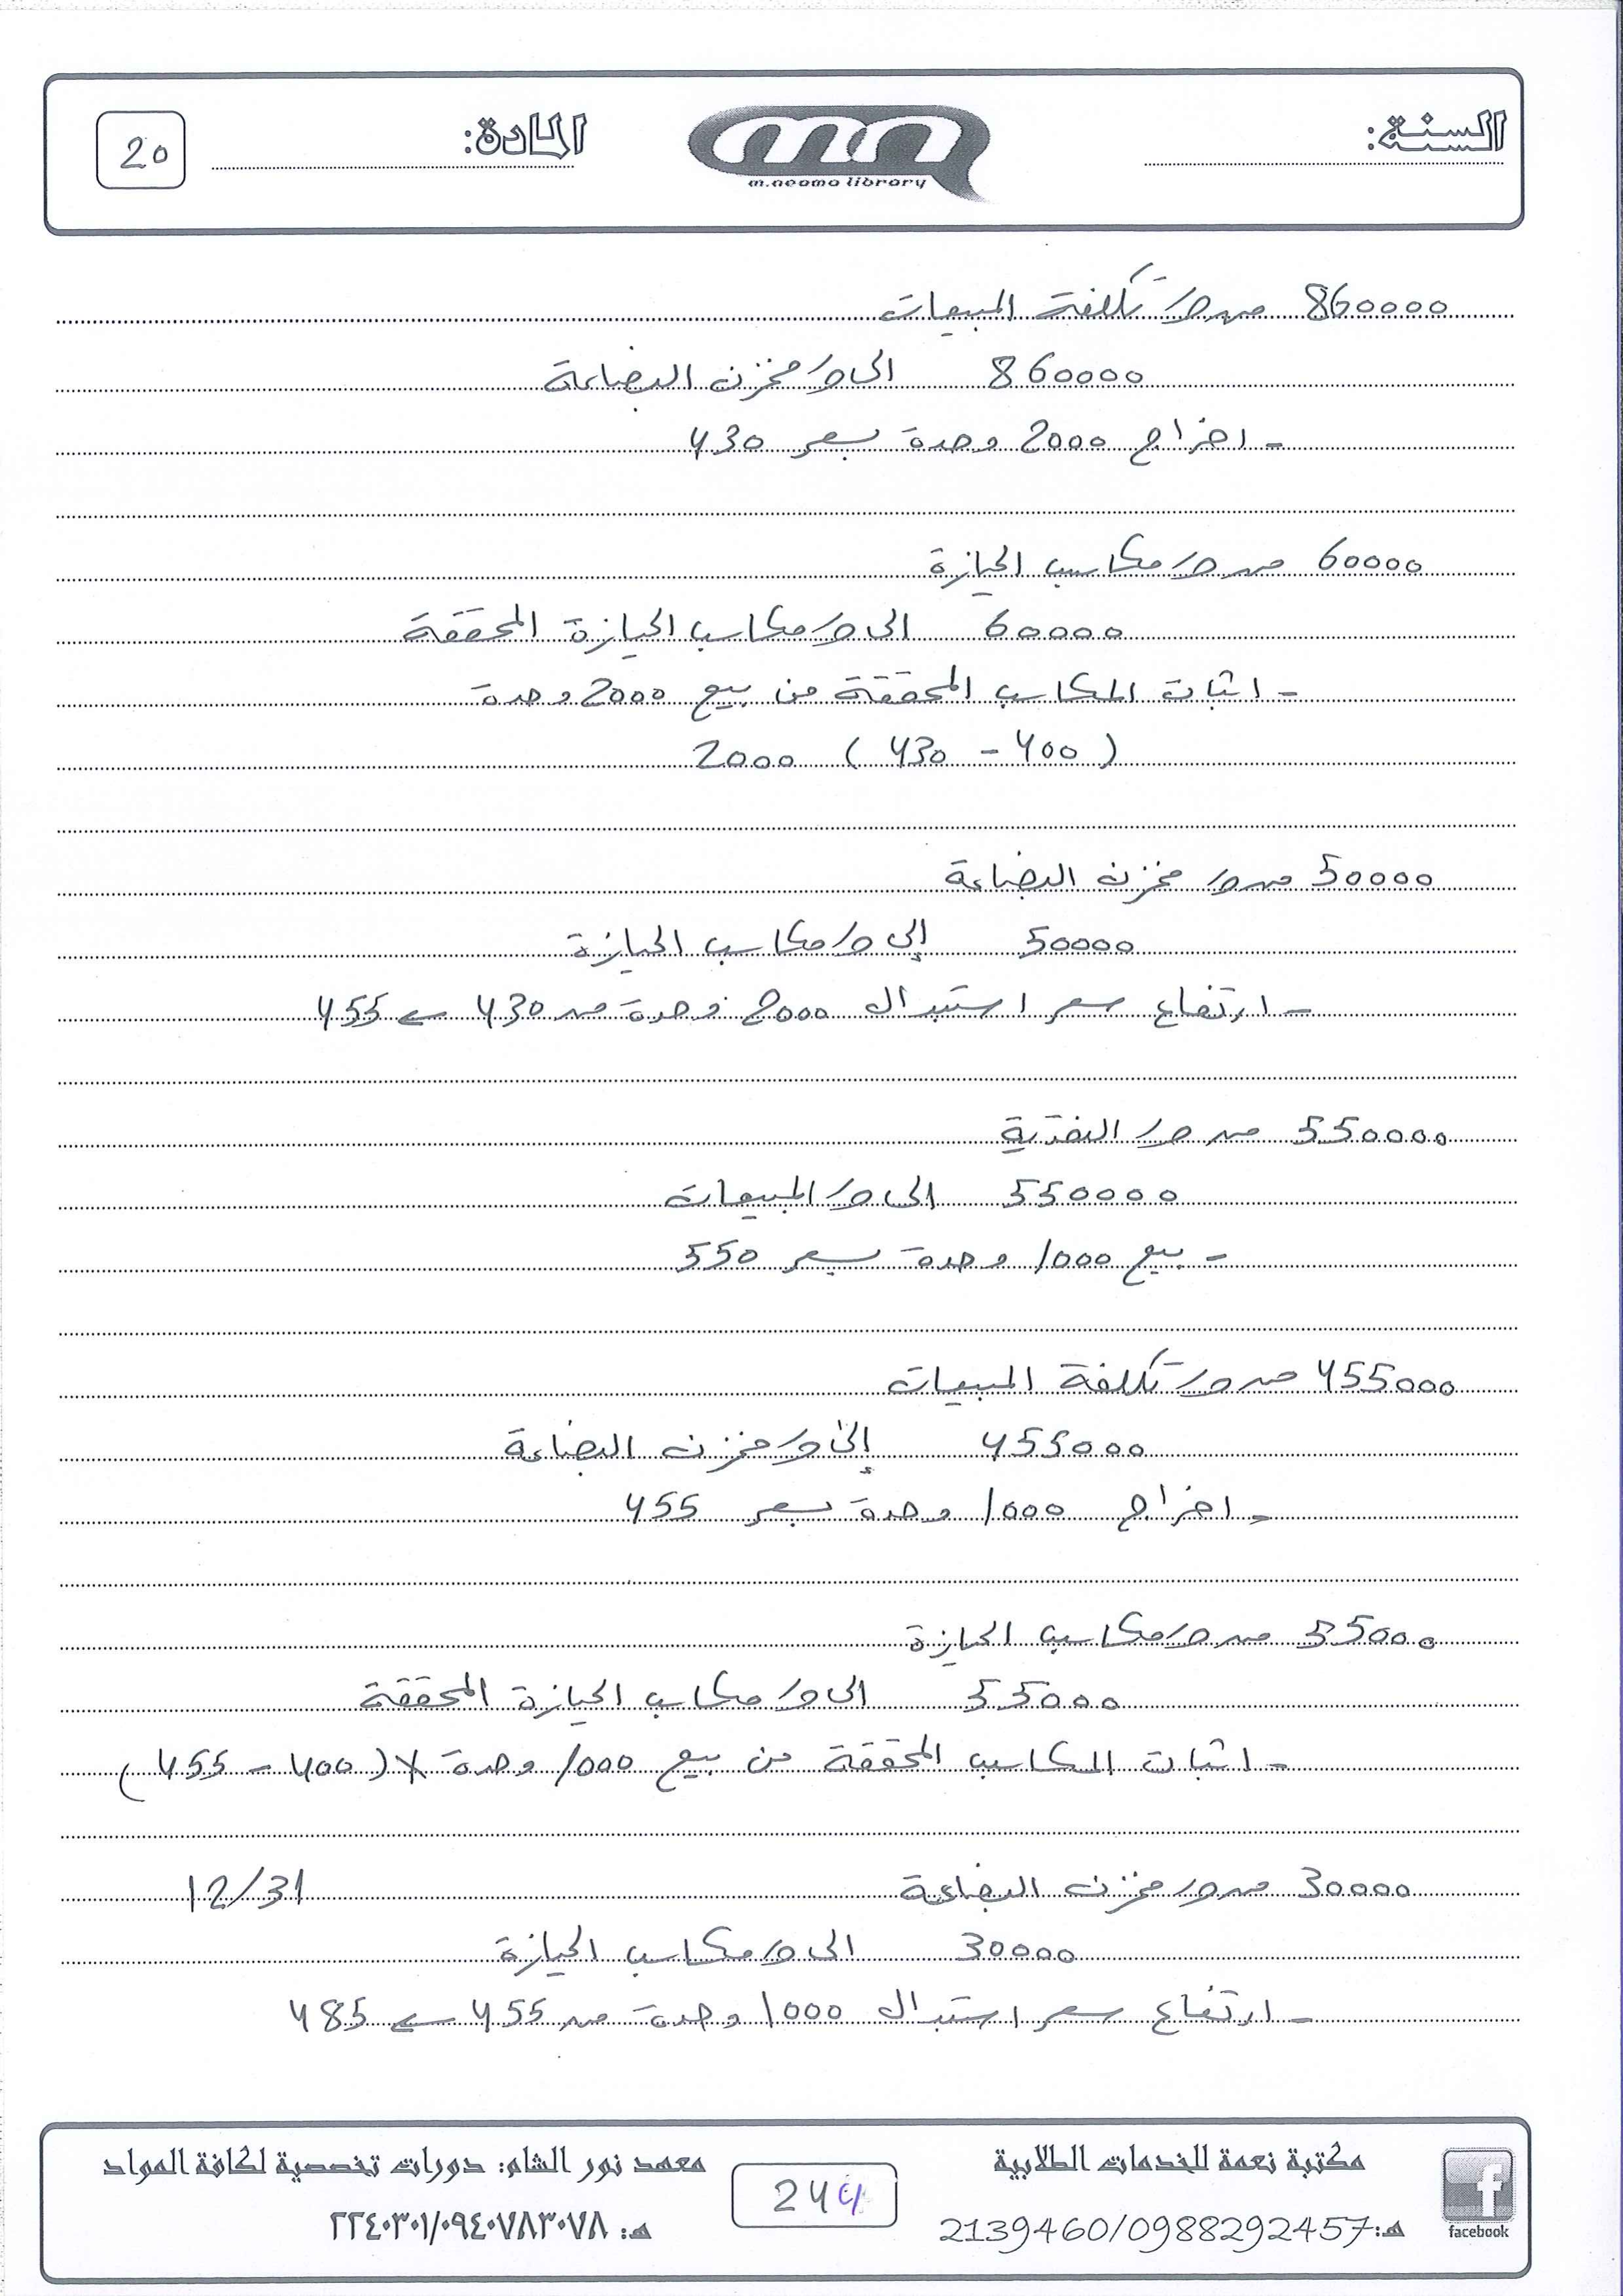 السنة:
m.neama library
المادة:
20
860000 من حـ/ تكلفة المبيعات
860000 الى حـ/ مخزن البضاعة
- اخراج 2000 وحدة بسعر 430
60000 من حـ/ مكاسب الحيازة
60000 الى حـ/ مكاسب الحيازة المحققة
- اثبات المكاسب المحققة من بيع 2000 وحدة
2000 ( 430 - 400 )
50000 من حـ/ مخزن البضاعة
50000 إلى حـ/ مكاسب الحيازة
- ارتفاع سعر استبدال 2000 وحدة من 430 ← 455
550000 من حـ/ النقدية
550000 الى حـ/ المبيعات
- بيع 1000 وحدة بسعر 550
455000 من حـ/ تكلفة المبيعات
455000 إلى حـ/ مخزن البضاعة
- اخراج 1000 وحدة بسعر 455
55000 من حـ/ مكاسب الحيازة
55000 الى حـ/ مكاسب الحيازة المحققة
- اثبات المكاسب المحققة من بيع 1000 وحدة × (455 - 400)
30000 من حـ/ مخزن البضاعة 12/31
30000 الى حـ/ مكاسب الحيازة
- ارتفاع سعر استبدال 1000 وحدة من 455 ← 485
مكتبة نعمة للخدمات الطلابية
هـ: 2139460/0988292457
facebook
244
معهد نور الشام: دورات تخصصية لكافة المواد
هـ: ٢٢٤٠٣٠١/٠٩٤٠٧٨٣٠٧٨